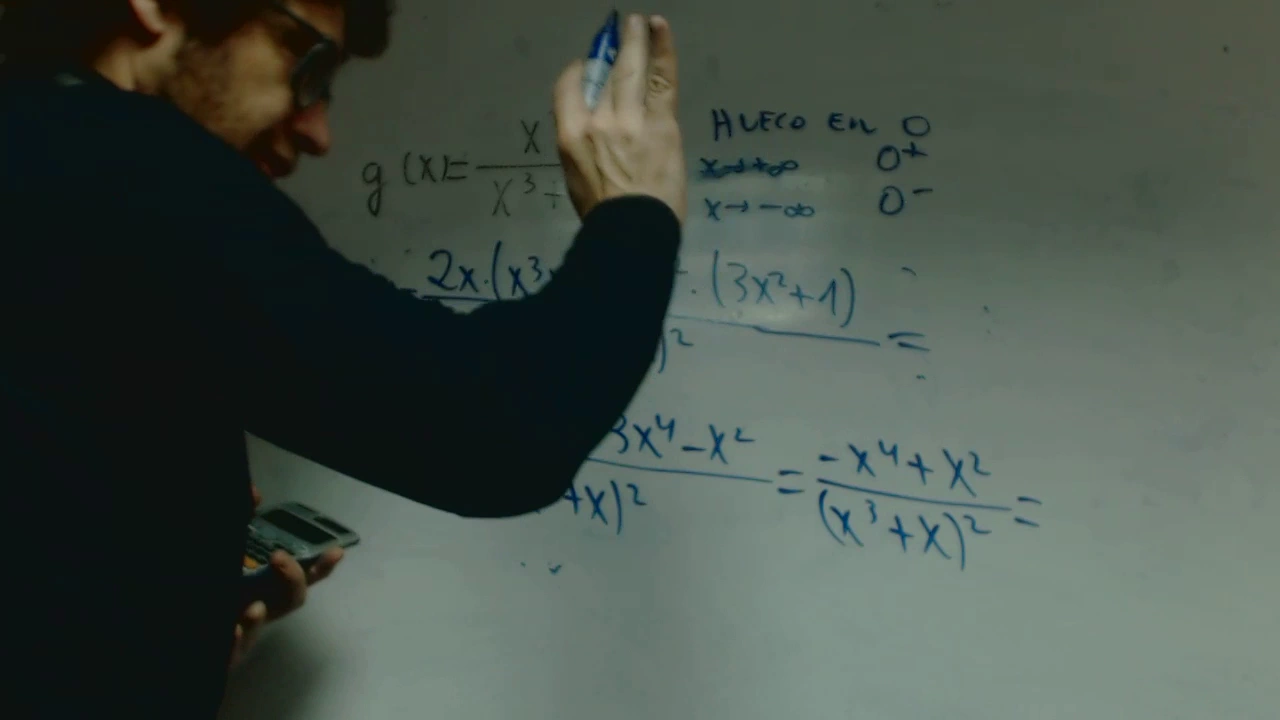 g(x)= x / x³+
HUECO EN 0
x→+∞ 0⁺
x→-∞ 0⁻
2x·(x³ · (3x²+1) / )² =
3x⁴-x² / +x)² = -x⁴+x² / (x³+x)² =